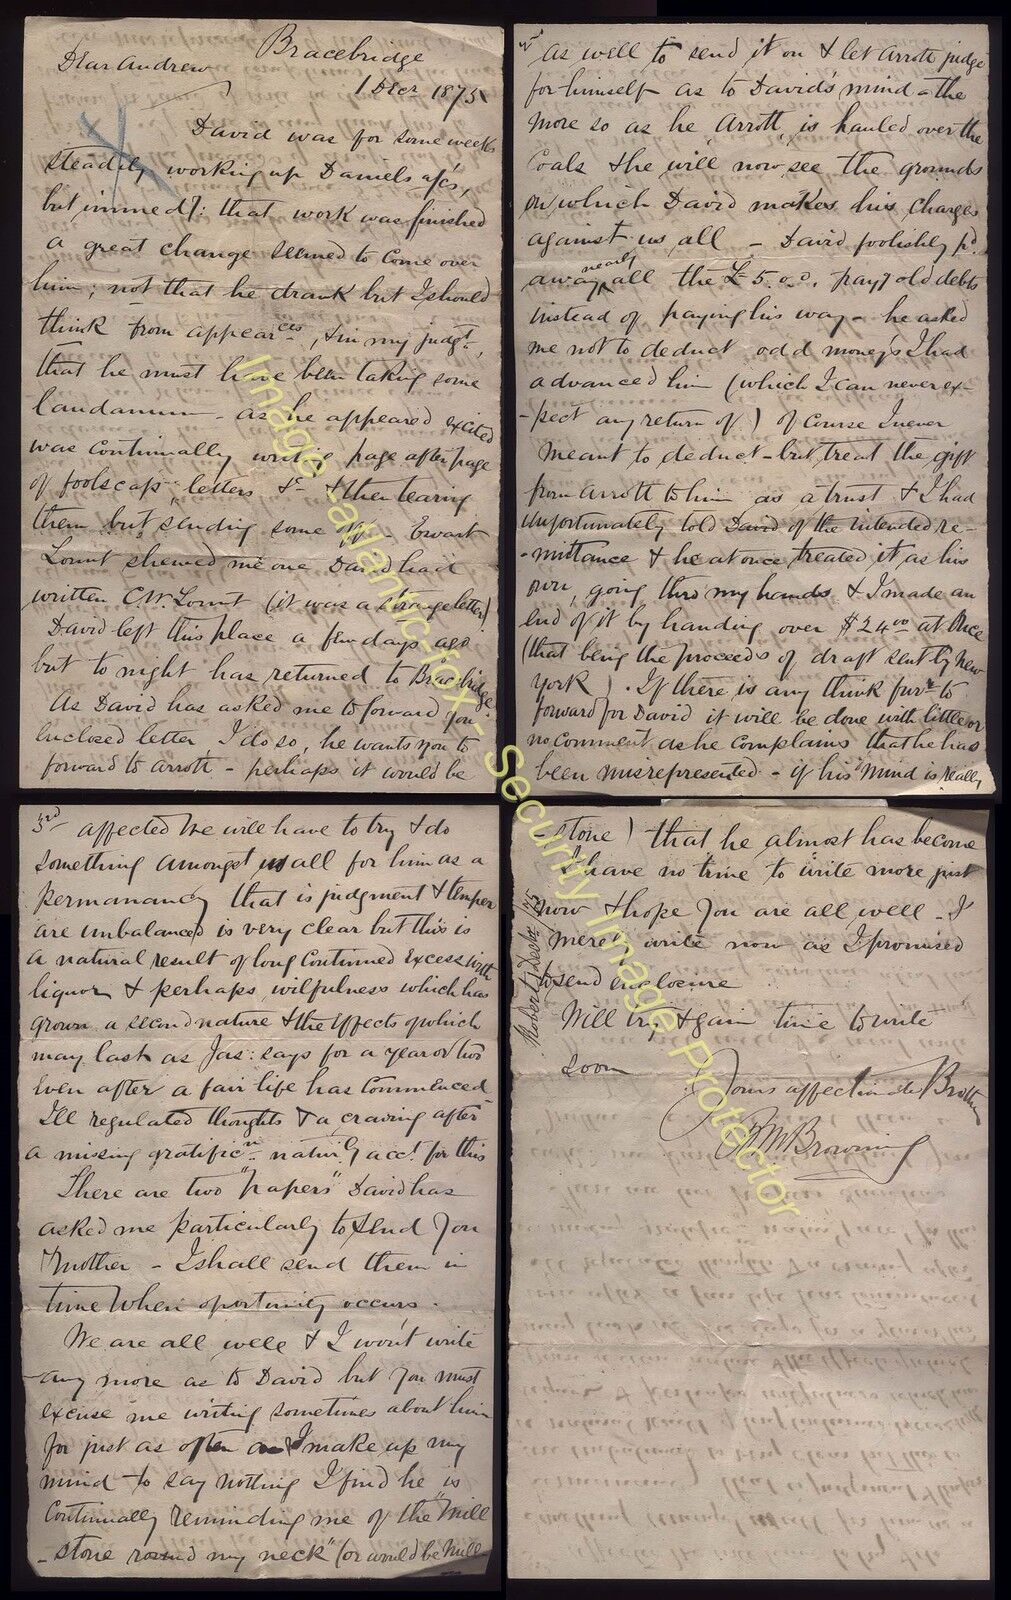 Bracebridge
1 Decr 1875
Dear Andrew
David was for some weeks
steadily working up Daniels a/cs,
but immedy: that work was finished
a great change seemed to come over
him; not that he drank but I should
think from appearces, & in my judgt,
that he must have been taking some
laudanum - as he appeared excited
was continually writing page after page
of foolscap letters &c - & then tearing
them but sending some off - Ewart
Lount shewed me one David had
written C.W. Lount (it was a strange letter)
David left this place a few days ago
but to night has returned to Bracebridge.
As David has asked me to forward you
Enclosed letter, I do so, he wants you to
forward to Arrott - perhaps it would be
2nd as well to send it on & let Arrott judge
for himself as to David's mind - the
more so as he, Arrott, is hauled over the
Coals & he will now see the grounds
on which David makes his charges
against us all - David foolishly pd.
away nearly all the £5.0.0. payg old debts
instead of paying his way - he asked
me not to deduct odd money's I had
advanced him (which I can never ex-
-pect any return of) Of Course I never
meant to deduct - but treat the gift
from Arrott to him as a trust & I had
unfortunately told David of the intended re-
-mittance & he at once treated it as his
own, going thro my hands & I made an
end of it by handing over $24.00 at once
(that being the proceeds of draft sent by New
York). If there is any think furr to
forward for David it will be done with little or
no comment as he complains that he has
been misrepresented - if his mind is really
3rd affected we will have to try & do
something amongst us all for him as a
permanancy that is judgment & temper
are unbalanced is very clear but this is
a natural result of long continued Excess with
liquor & perhaps wilfulness which has
grown a second nature & the Effects of which
may last as Jas: says for a year or two
Even after a fair life has commenced
Ill regulated thoughts & a craving after
a missing gratificn naturly acct. for this
There are two "papers" David has
asked me particularly to send you
Mother - I shall send them in
time when oportunity occurs.
We are all well & I won't write
any more as to David but you must
excuse me writing sometimes about him
for just as often as I make up my
mind to say nothing I find he is
Continually reminding me of the "Mill
-stone round my neck" (or would be Mill-
stone) that he almost has become
I have no time to write more just
now & hope you are all well - I
merely write now as I promised
to send enclosure
Will try & gain time to write
soon
Yours affectionate Brother
R M Browning
Robert 1 Decbr /75
Image - atlantic-fox - Security Image Protector